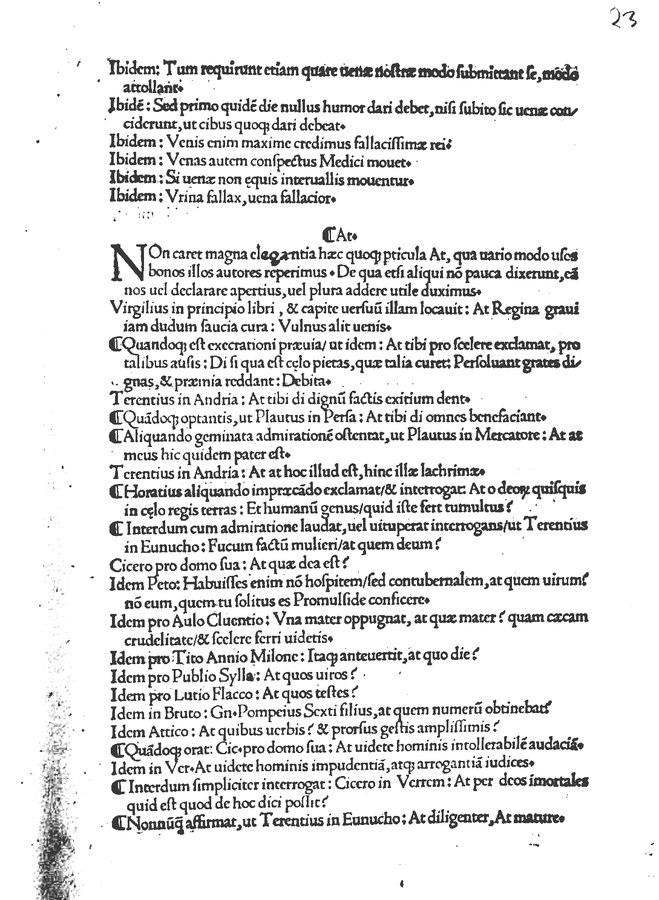 23
Ibidem: Tum requirunt etiam quare uenæ nostræ modo submittant se, mōdo
attollant.
Ibidē: Sed primo quidē die nullus humor dari debet, nisi subito sic uenæ con/
ciderunt, ut cibus quoqꝫ dari debeat.
Ibidem: Venis enim maxime credimus fallacissimæ rei.
Ibidem: Venas autem conspectus Medici mouet.
Ibidem: Si uenæ non ęquis interuallis mouentur.
Ibidem: Vrina fallax, uena fallacior.
⸿At.
NOn caret magna elegantia hæc quoqꝫ pticula At, qua uario modo usos
bonos illos autores reperimus. De qua etsi aliqui nō pauca dixerunt, eā
nos uel declarare apertius, uel plura addere utile duximus.
Virgilius in principio libri, & capite uersuū illam locauit: At Regina graui
iam dudum saucia cura: Vulnus alit uenis.
⸿Quandoqꝫ est execrationi præuia/ ut idem: At tibi pro scelere exclamat, pro
talibus ausis: Di si qua est cęlo pietas, quæ talia curet: Persoluant grates di/
gnas, & præmia reddant: Debita.
Terentius in Andria: At tibi di dignū factis exitium dent.
⸿Quādoqꝫ optantis, ut Plautus in Persa: At tibi di omnes benefaciant.
⸿Aliquando geminata admirationē ostentat, ut Plautus in Mercatore: At at
meus hic quidem pater est.
Terentius in Andria: At at hoc illud est, hinc illæ lachrimæ.
⸿Horatius aliquando impręcādo exclamat/& interrogat: At o deoꝝ quisquis
in cęlo regis terras: Et humanū genus/quid iste fert tumultus?
⸿Interdum cum admiratione laudat, uel uituperat interrogans/ut Terentius
in Eunucho: Fucum factū mulieri/at quem deum?
Cicero pro domo sua: At quæ dea est?
Idem Peto: Habuisses enim nō hospitem/sed contubernalem, at quem uirum?
nō eum, quem tu solitus es Promulside conficere.
Idem pro Aulo Cluentio: Vna mater oppugnat, at quæ mater? quam cæcam
crudelitate/& scelere ferri uidetis.
Idem pro Tito Annio Milone: Itaqꝫ anteuertit, at quo die?
Idem pro Publio Sylla: At quos uiros?
Idem pro Lutio Flacco: At quos testes?
Idem in Bruto: Gn. Pompeius Sexti filius, at quem numerū obtinebat?
Idem Attico: At quibus uerbis? & prorsus gestis amplissimis?
⸿Quādoqꝫ orat: Cic. pro domo sua: At uidete hominis intollerabilē audaciā.
Idem in Ver. At uidete hominis impudentiā, atqꝫ arrogantiā iudices.
⸿Interdum simpliciter interrogat: Cicero in Verrem: At per deos imortales
quid est quod de hoc dici possit?
⸿Nonnūꝗ affirmat, ut Terentius in Eunucho: At diligenter, At mature.